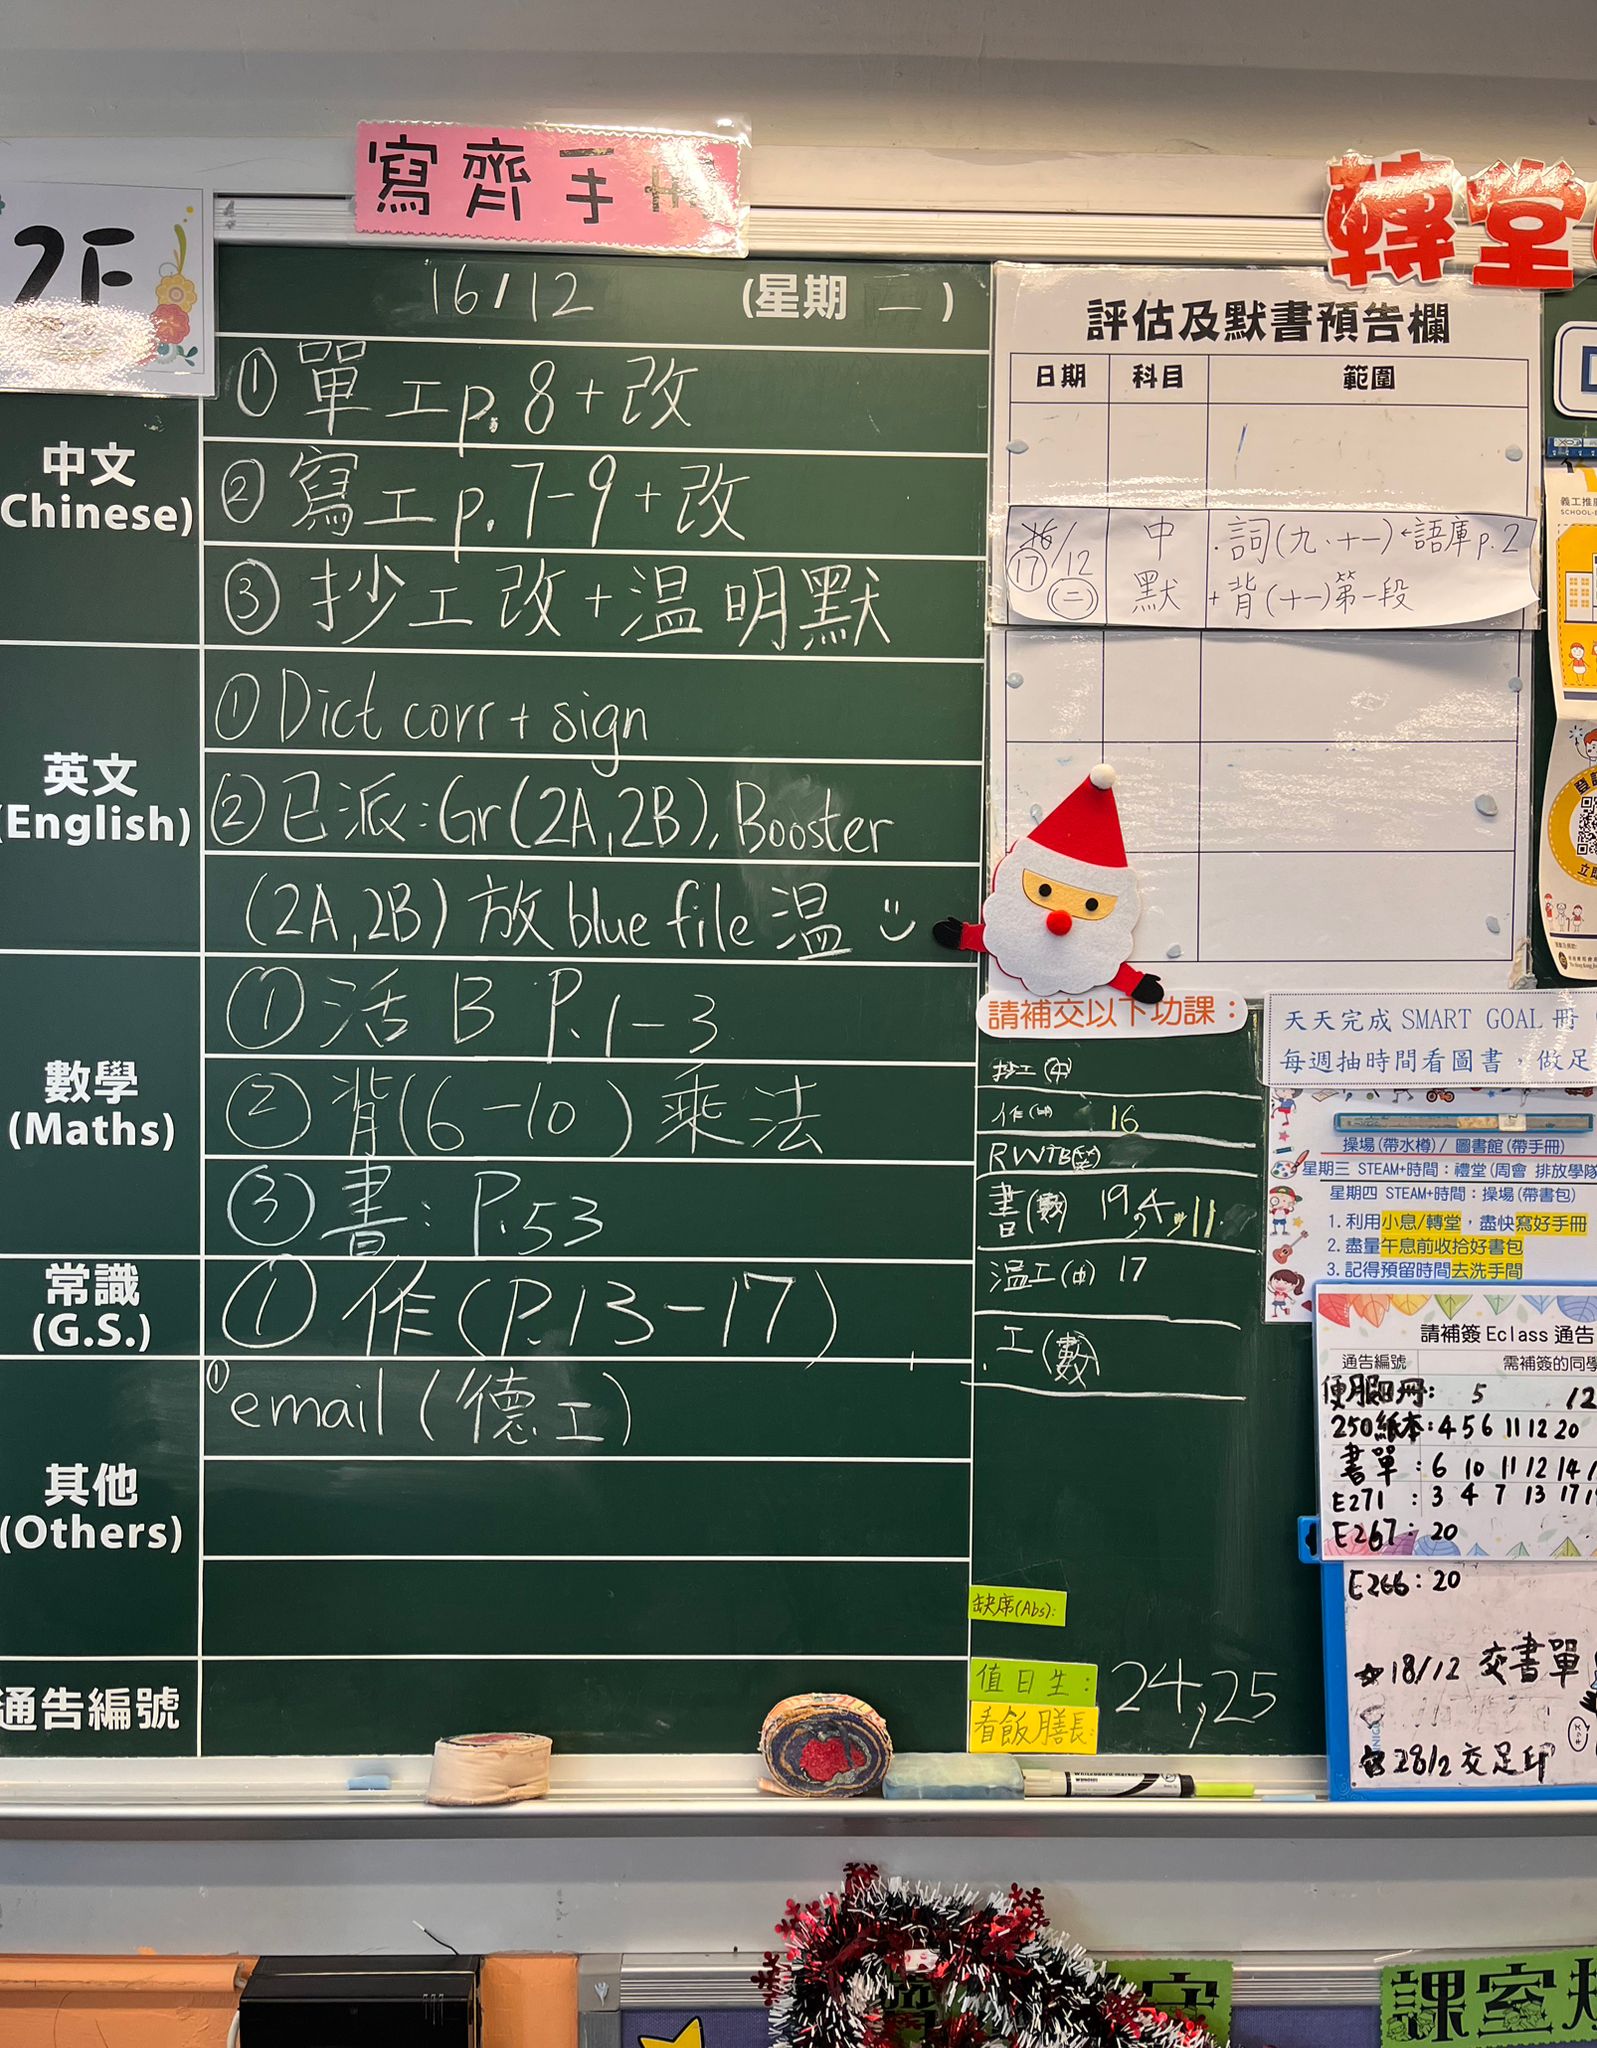 寫齊手冊
轉堂
2F
16/12 (星期二)
中文
(Chinese)
① 單工p.8+改
② 寫工p.7-9+改
③ 抄工改+溫明默
英文
(English)
① Dict corr + sign
② 已派:Gr(2A,2B), Booster
(2A,2B) 放 blue file 溫
數學
(Maths)
① 活 B P.1-3
② 背(6-10)乘法
③ 書: P.53
常識
(G.S.)
① 作(P.13-17)
其他
(Others)
① email (德工)
通告編號
評估及默書預告欄
日期 科目 範圍
17/12 (二) 中默 .詞(九、十一)←語庫p.2
+背(十一)第一段
請補交以下功課:
抄工(中)
作( ) 16
RWTB(英)
書(數) 19,4,11
溫工(中) 17
工(數)
缺席(Abs):
值日生:
看飯膳長:
24,25
天天完成 SMART GOAL 冊
每週抽時間看圖書,做足
操場(帶水樽)/ 圖書館(帶手冊)
星期三 STEAM+時間:禮堂(周會 排放學隊
星期四 STEAM+時間:操場(帶書包)
1. 利用小息/轉堂,盡快寫好手冊
2. 盡量午息前收拾好書包
3. 記得預留時間去洗手間
請補簽 Eclass 通告
通告編號 需補簽的同學
便服日冊: 5 12
250紙本: 4 5 6 11 12 20
書單: 6 10 11 12 14
E271: 3 4 7 13 17
E267: 20
E266: 20
18/12 交書單
28/2 交足印
義工推
SCHOOL-
登
立即
課室